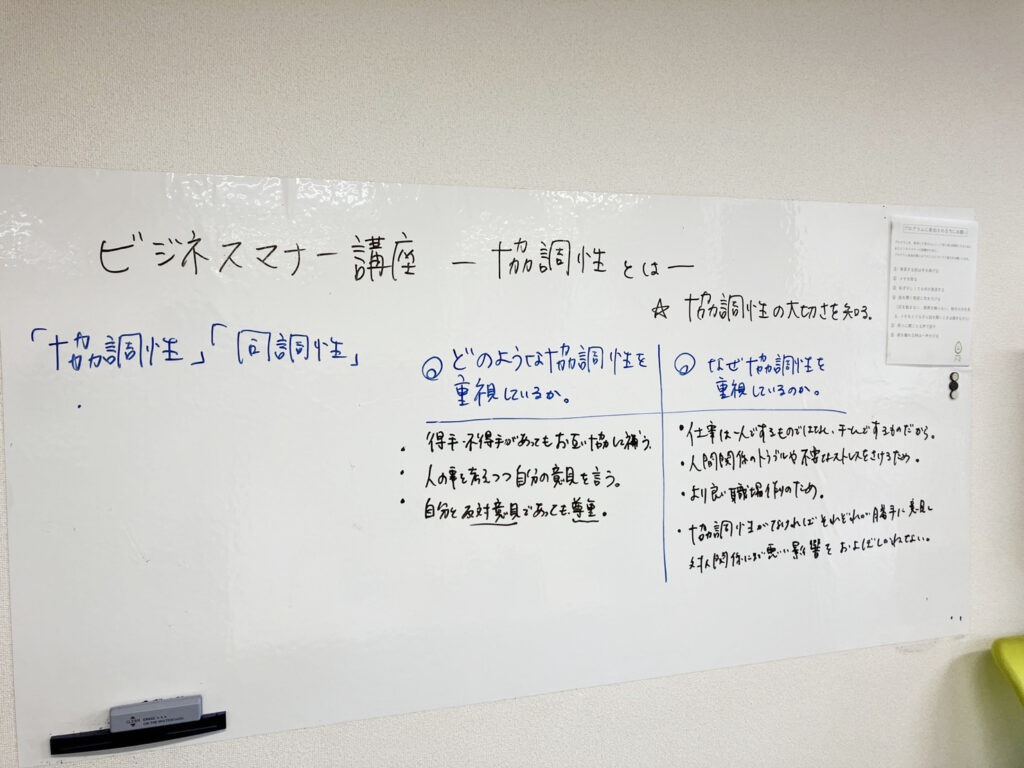 ビジネスマナー講座 ー協調性とはー
☆ 協調性の大切さを知る。
「協調性」「同調性」
・
Q どのような協調性を
重視しているか。
・得手・不得手があってもお互い協して補う。
・人の事を考えつつ自分の意見を言う。
・自分と反対意見であっても尊重。
Q なぜ協調性を
重視しているのか。
・仕事は一人でするものではなく、チームでするものだから。
・人間関係のトラブルや不要なストレスをさけるため。
・より良い職場作りのため。
・協調性がなければそれぞれが勝手に意見し
対人関係にまで悪い影響をおよぼしかねない。
プログラムに参加される方にお願い